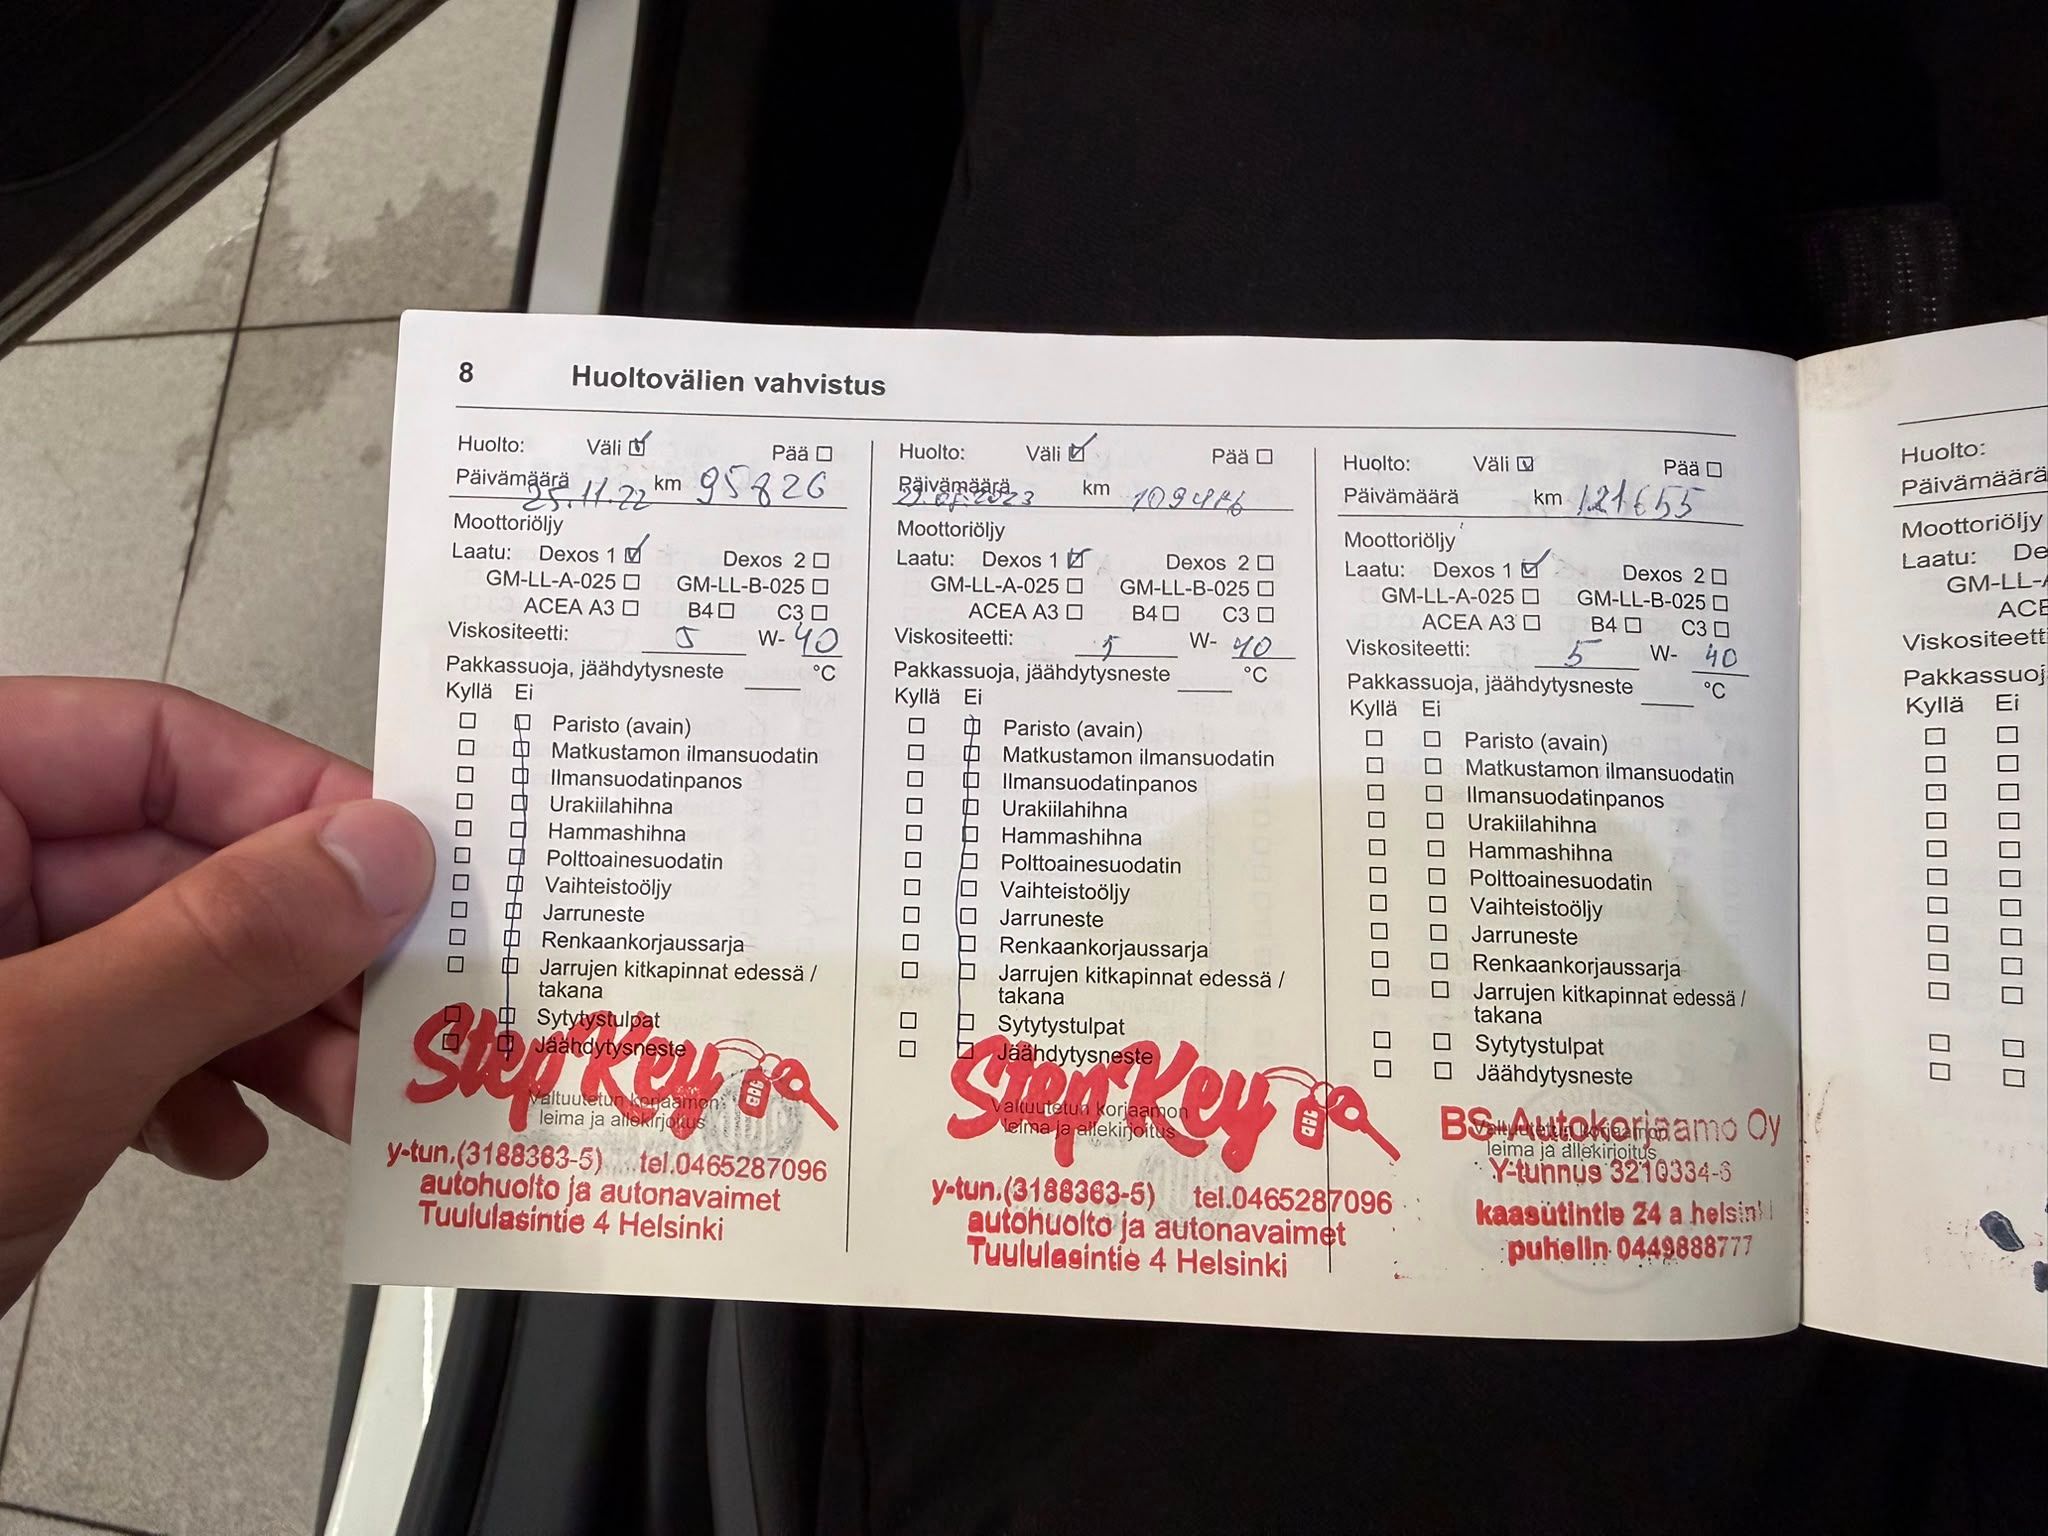 8 Huoltovälien vahvistus
Huolto: Väli Pää
Päivämäärä 25.11.22 km 95826
Moottoriöljy
Laatu: Dexos 1 Dexos 2
GM-LL-A-025 GM-LL-B-025
ACEA A3 B4 C3
Viskositeetti: 5 W- 40
Pakkassuoja, jäähdytysneste °C
Kyllä Ei
Paristo (avain)
Matkustamon ilmansuodatin
Ilmansuodatinpanos
Urakiilahihna
Hammashihna
Polttoainesuodatin
Vaihteistoöljy
Jarruneste
Renkaankorjaussarja
Jarrujen kitkapinnat edessä /
takana
Sytytystulpat
Jäähdytysneste
Step Key
Valtuutetun korjaamon
leima ja allekirjoitus
y-tun.(3188363-5) tel.0465287096
autohuolto ja autonavaimet
Tuululasintie 4 Helsinki
Huolto: Väli Pää
Päivämäärä km
Moottoriöljy
Laatu: Dexos 1 Dexos 2
GM-LL-A-025 GM-LL-B-025
ACEA A3 B4 C3
Viskositeetti: 5 W- 40
Pakkassuoja, jäähdytysneste °C
Kyllä Ei
Paristo (avain)
Matkustamon ilmansuodatin
Ilmansuodatinpanos
Urakiilahihna
Hammashihna
Polttoainesuodatin
Vaihteistoöljy
Jarruneste
Renkaankorjaussarja
Jarrujen kitkapinnat edessä /
takana
Sytytystulpat
Jäähdytysneste
Step Key
Valtuutetun korjaamon
leima ja allekirjoitus
y-tun.(3188363-5) tel.0465287096
autohuolto ja autonavaimet
Tuululasintie 4 Helsinki
Huolto: Väli Pää
Päivämäärä km 121655
Moottoriöljy
Laatu: Dexos 1 Dexos 2
GM-LL-A-025 GM-LL-B-025
ACEA A3 B4 C3
Viskositeetti: 5 W- 40
Pakkassuoja, jäähdytysneste °C
Kyllä Ei
Paristo (avain)
Matkustamon ilmansuodatin
Ilmansuodatinpanos
Urakiilahihna
Hammashihna
Polttoainesuodatin
Vaihteistoöljy
Jarruneste
Renkaankorjaussarja
Jarrujen kitkapinnat edessä /
takana
Sytytystulpat
Jäähdytysneste
BS-Autokorjaamo Oy
Valtuutetun korjaamon
leima ja allekirjoitus
Y-tunnus 3210334-6
kaasutintie 24 a helsinki
puhelin 0449888777
Huolto:
Päivämäärä
Moottoriöljy
Laatu: De
GM-LL-A
ACE
Viskositeetti
Pakkassuoj
Kyllä Ei